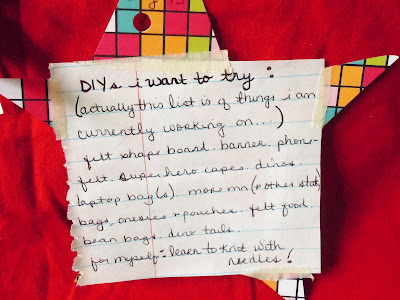 DIYs i want to try :
(actually this list is of things i am
currently working on...)
felt shape board. banner. phone-
felt. superhero capes. dinos.
laptop bag(s). more mn (& other state)
bags, onesies & pouches. felt food.
bean bags. dino tails.
for myself : learn to knit with
needles!